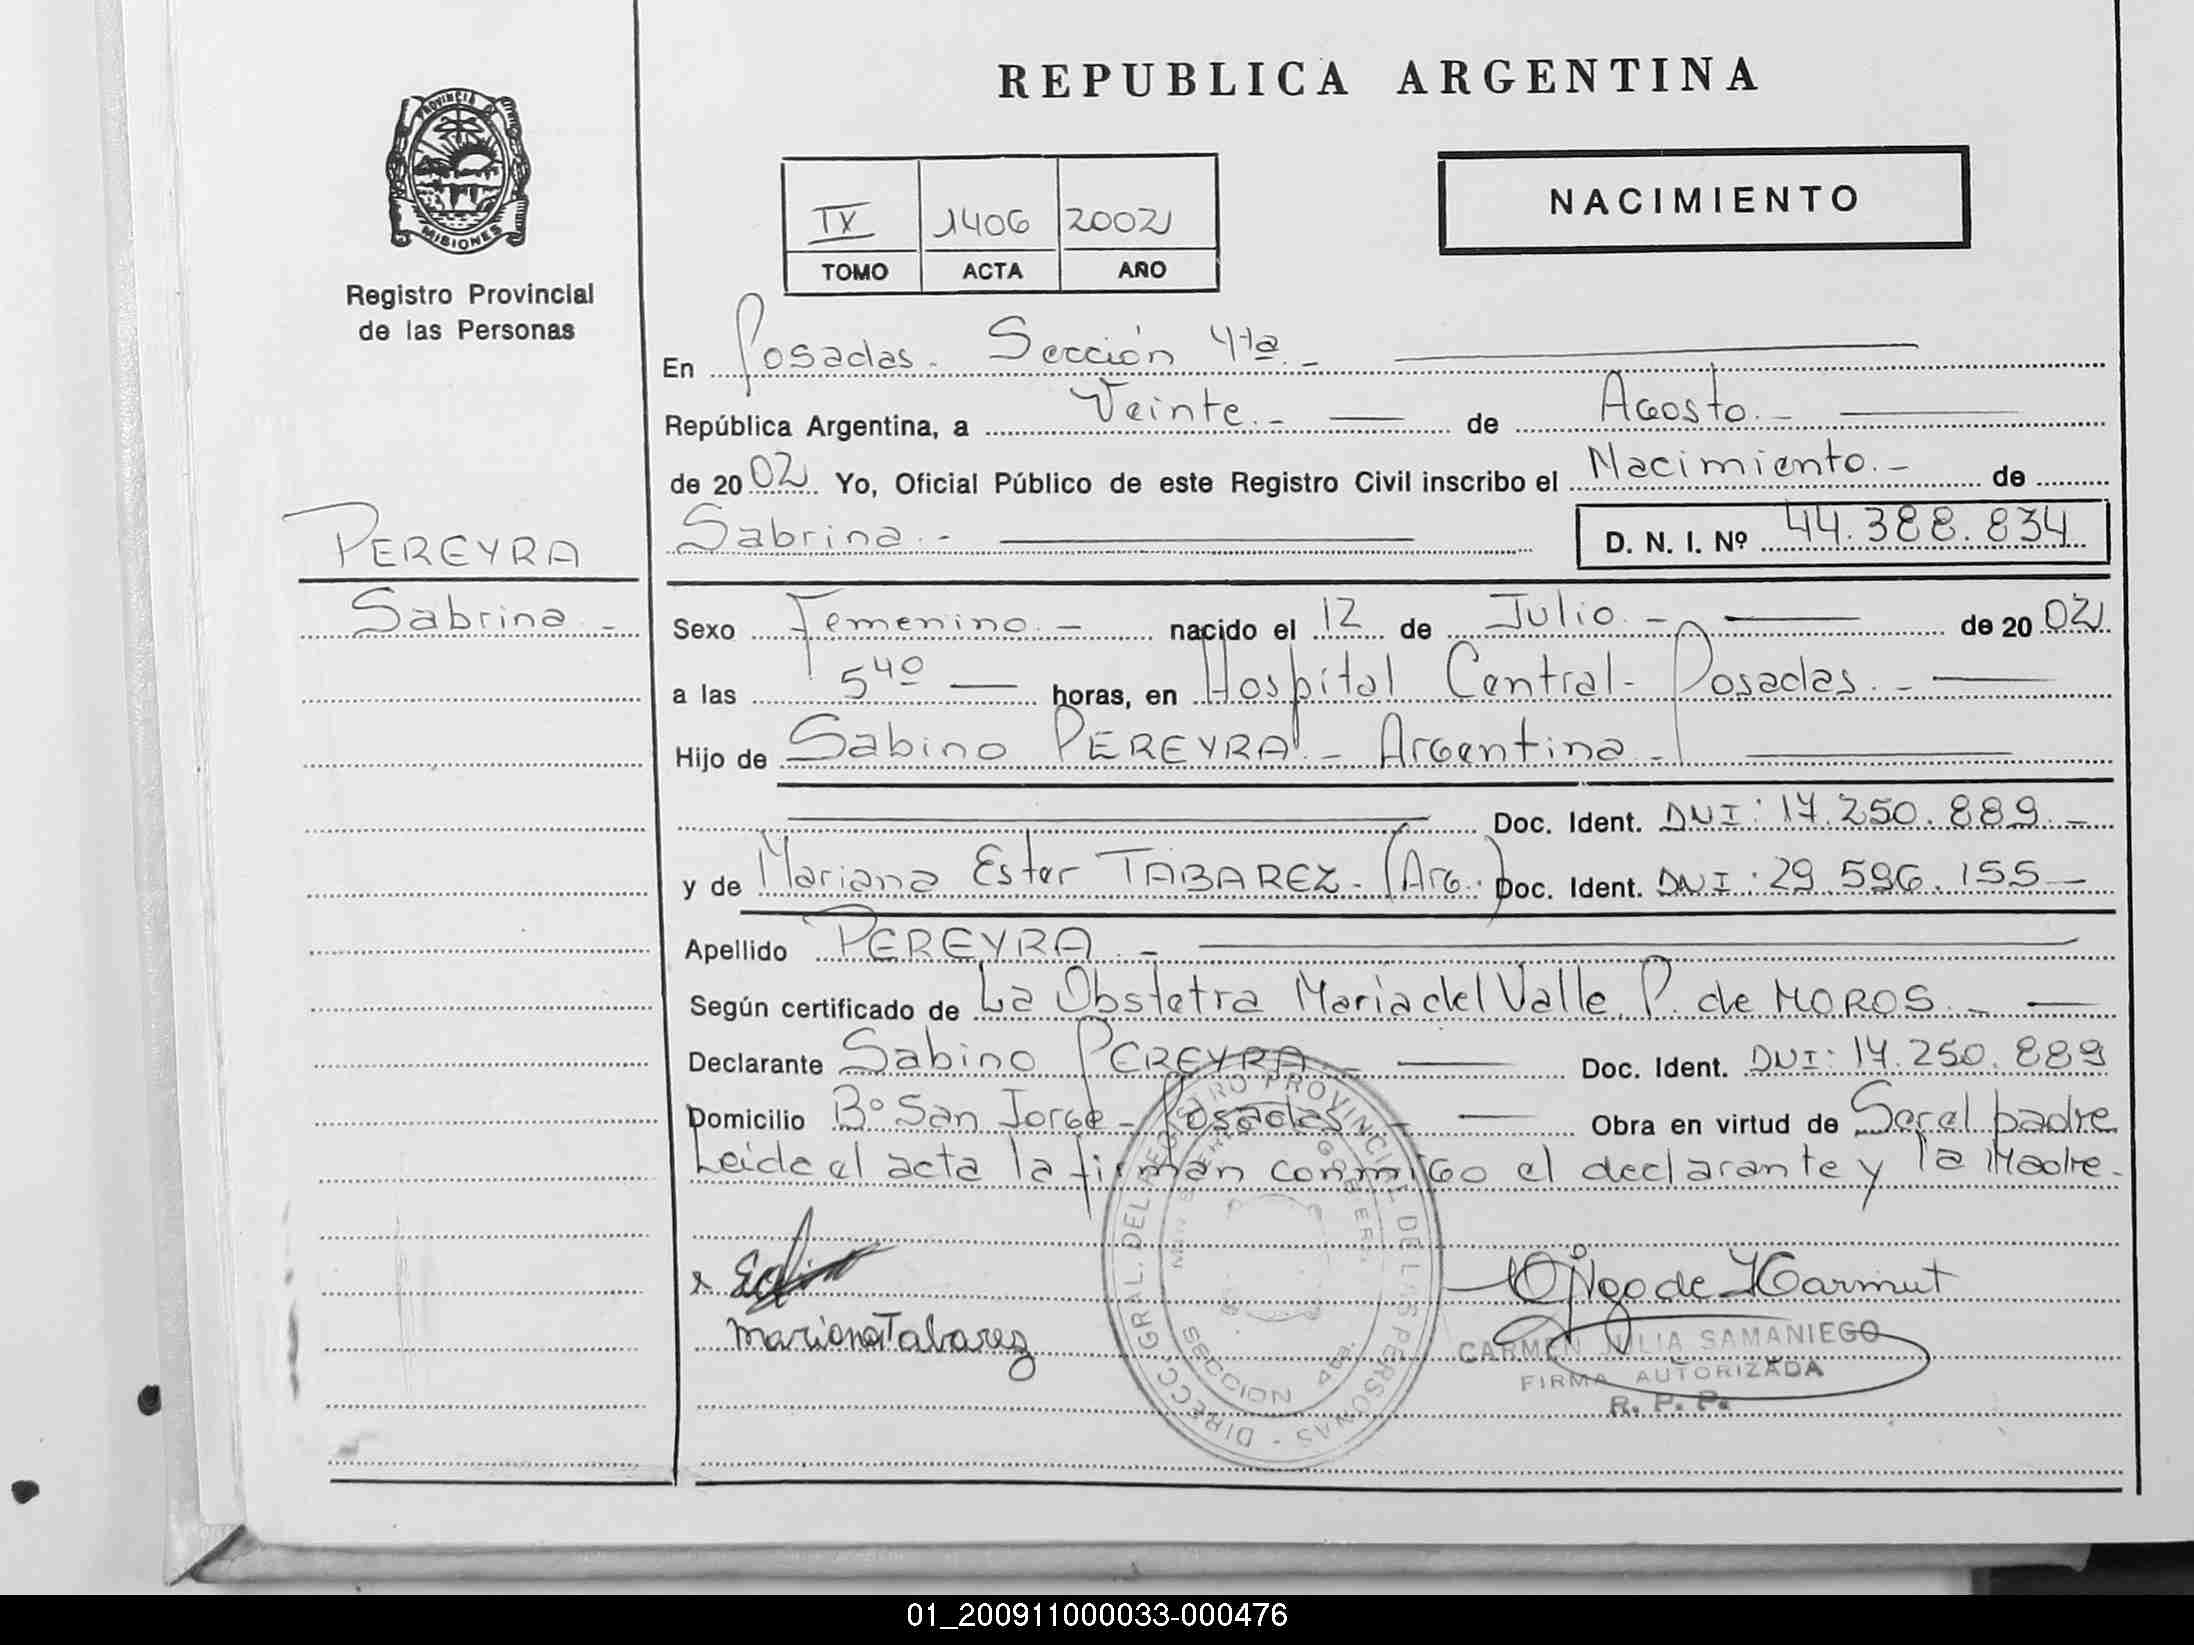 REPUBLICA ARGENTINA
PROVINCIA DE
MISIONES
Registro Provincial
de las Personas
IX 1406 2002
TOMO ACTA AÑO
NACIMIENTO
En Posadas. Sección 4ta.-
República Argentina, a Veinte.- de Agosto.-
de 2002 Yo, Oficial Público de este Registro Civil inscribo el Nacimiento.- de
Sabrina.- D. N. I. Nº 44.388.834
PEREYRA
Sabrina.-
Sexo Femenino.- nacido el 12 de Julio.- de 2002
a las 5 40 horas, en Hospital Central- Posadas.-
Hijo de Sabino PEREYRA.- Argentina.-
Doc. Ident. DNI: 17.250.889.-
y de Mariana Ester TABAREZ.- (Arg.) Doc. Ident. DNI: 29.596.155-
Apellido PEREYRA.-
Según certificado de La Obstetra Maria del Valle P. de MOROS.-
Declarante Sabino PEREYRA.- Doc. Ident. DNI: 17.250.889
Domicilio Bº San Jorge- Posadas- Obra en virtud de Ser el padre
Leida el acta la firman conmigo el declarante y la Madre.-
DIRECC. GRAL. DEL REGISTRO PROVINCIAL DE LAS PERSONAS -
SECCION 4ta.
Mariana Tabarez
CARMEN JULIA SAMANIEGO
FIRMA AUTORIZADA
R. P. P.
01_200911000033-000476